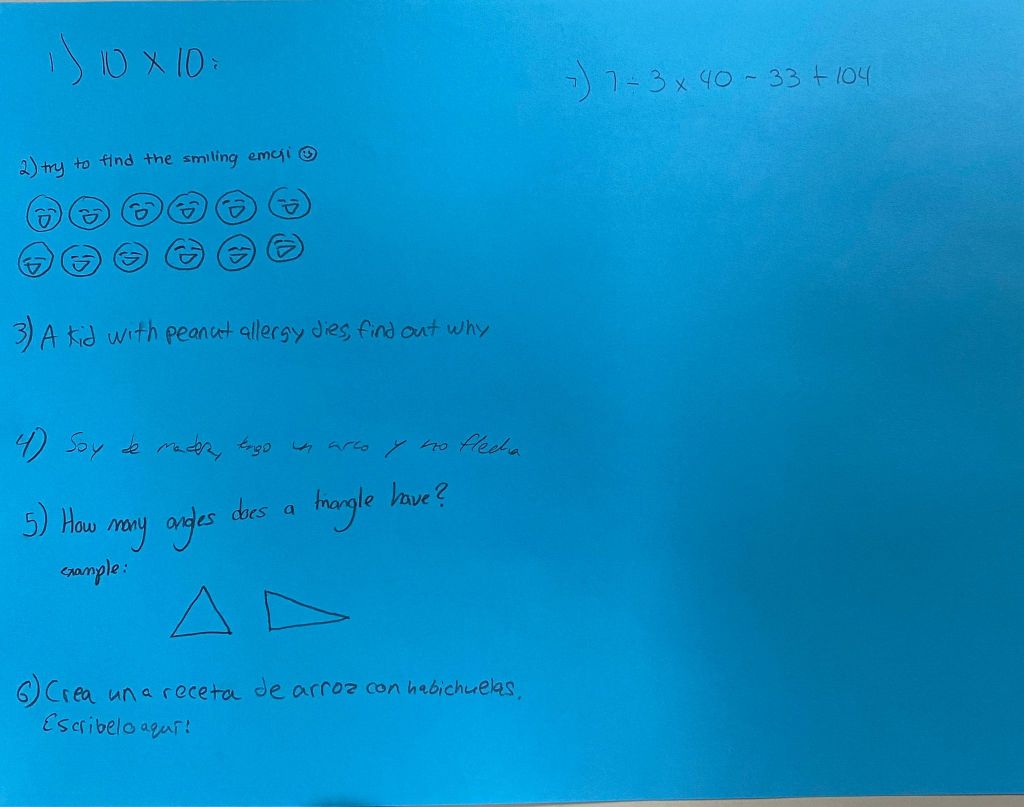 1) 10 x 10:
2) try to find the smiling emoji
3) A kid with peanut allergy dies, find out why
4) Soy de madera, tengo un arco y no flecha
5) How many angles does a triangle have?
example:
6) Crea una receta de arroz con habichuelas.
Escribelo aquí!
7) 7 ÷ 3 x 40 - 33 + 104